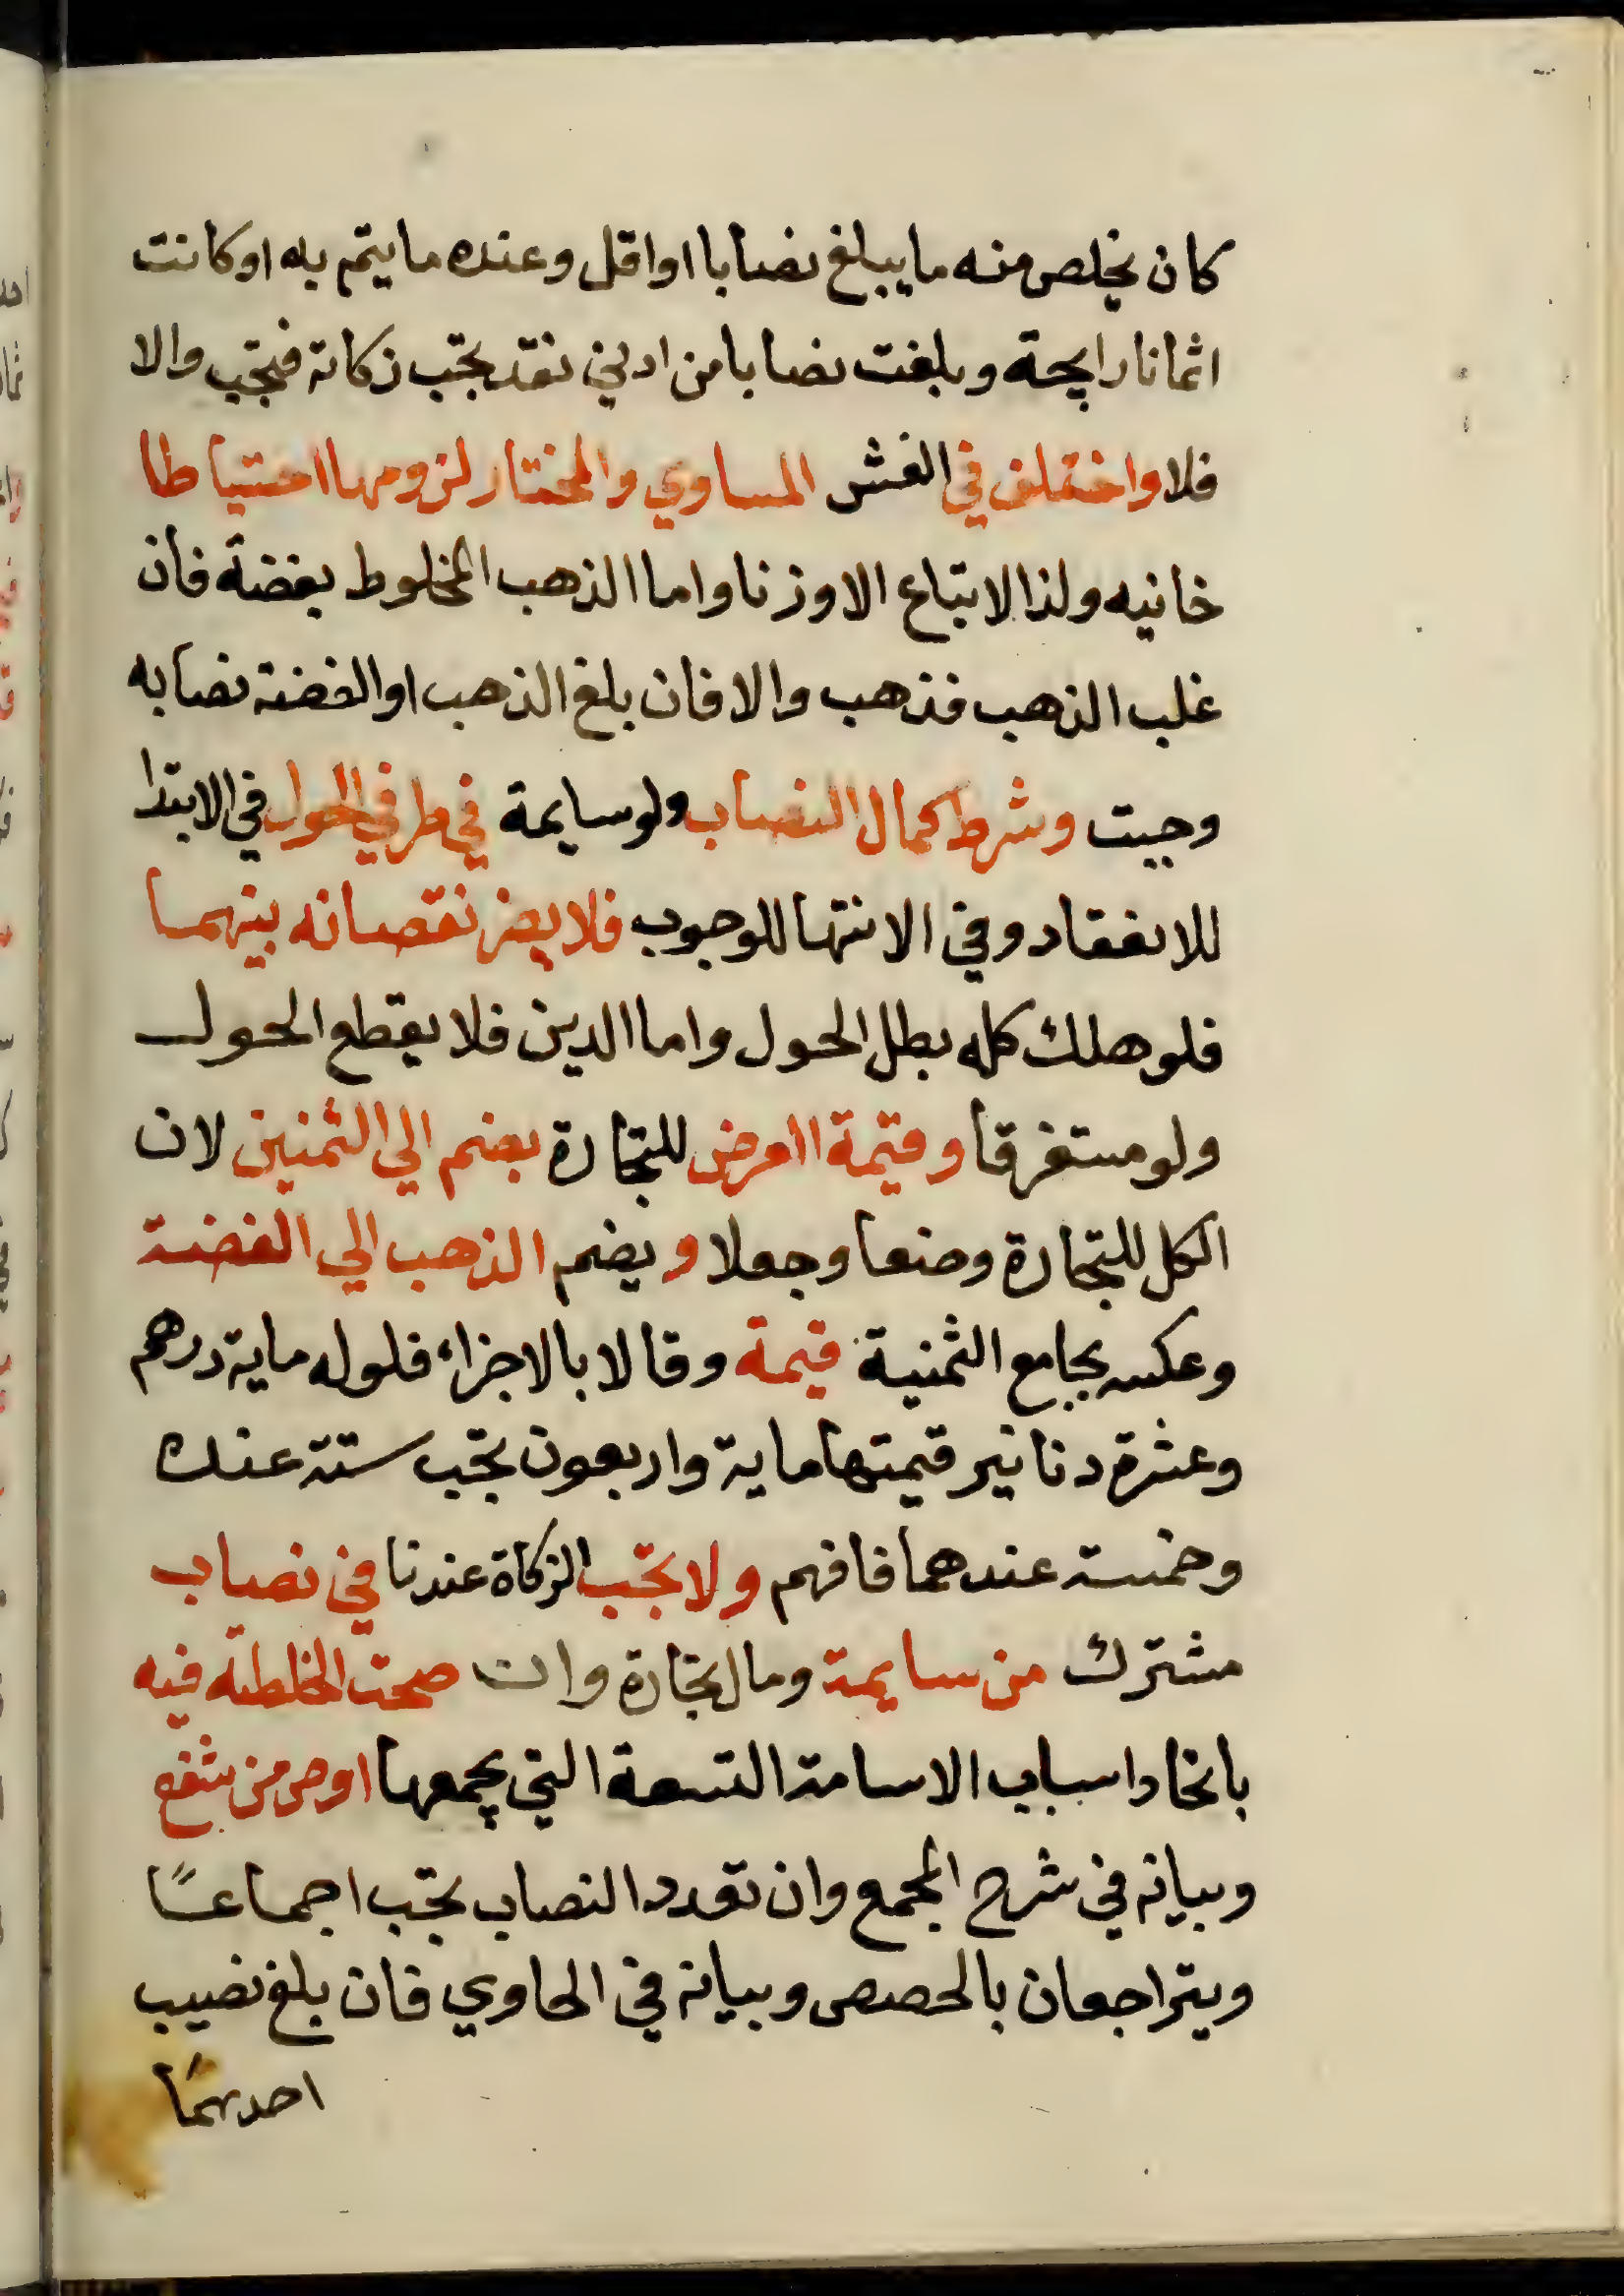 كان يخلص منه ما يبلغ نصابا او اقل وعنده ما يتم به او كانت
اثمانا رايجة وبلغت نصابا من ادني نقد تجب زكاته فتجب والا
فلا واختلف في الغش المساوي والمختار لزومها احتياطا
خانيه ولذا لا تباع الا وزنا واما الذهب المخلوط بفضة فان
غلب الذهب فذهب والا فان بلغ الذهب او الفضة نصابه
وجبت وشرط كمال النصاب ولو سايمة في طرفي الحول في الابتدا
للانعقاد وفي الانتها للوجوب فلا يضر نقصانه بينهما
فلو هلك كله بطل الحول واما الدين فلا يقطع الحول
ولو مستغرقا وقيمة العرض للتجارة يضم الي الثمنين لان
الكل للتجارة وضعا وجعلا ويضم الذهب الي الفضة
وعكسه بجامع الثمنية قيمة وقالا بالاجزاء فلو له ماية درهم
وعشرة دنانير قيمتها ماية واربعون تجب ستة عنده
وخمسة عندهما فافهم ولا تجب الزكاة عندنا في نصاب
مشترك من سايمة ومال تجارة وان صحت الخلطة فيه
باتحاد اسباب الاسامة التسعة التي يجمعها اوص من يشفع
وبيانه في شرح المجمع وان تعدد النصاب تجب اجماعًا
ويتراجعان بالحصص وبيانه في الحاوي فان بلغ نصيب
احدهما